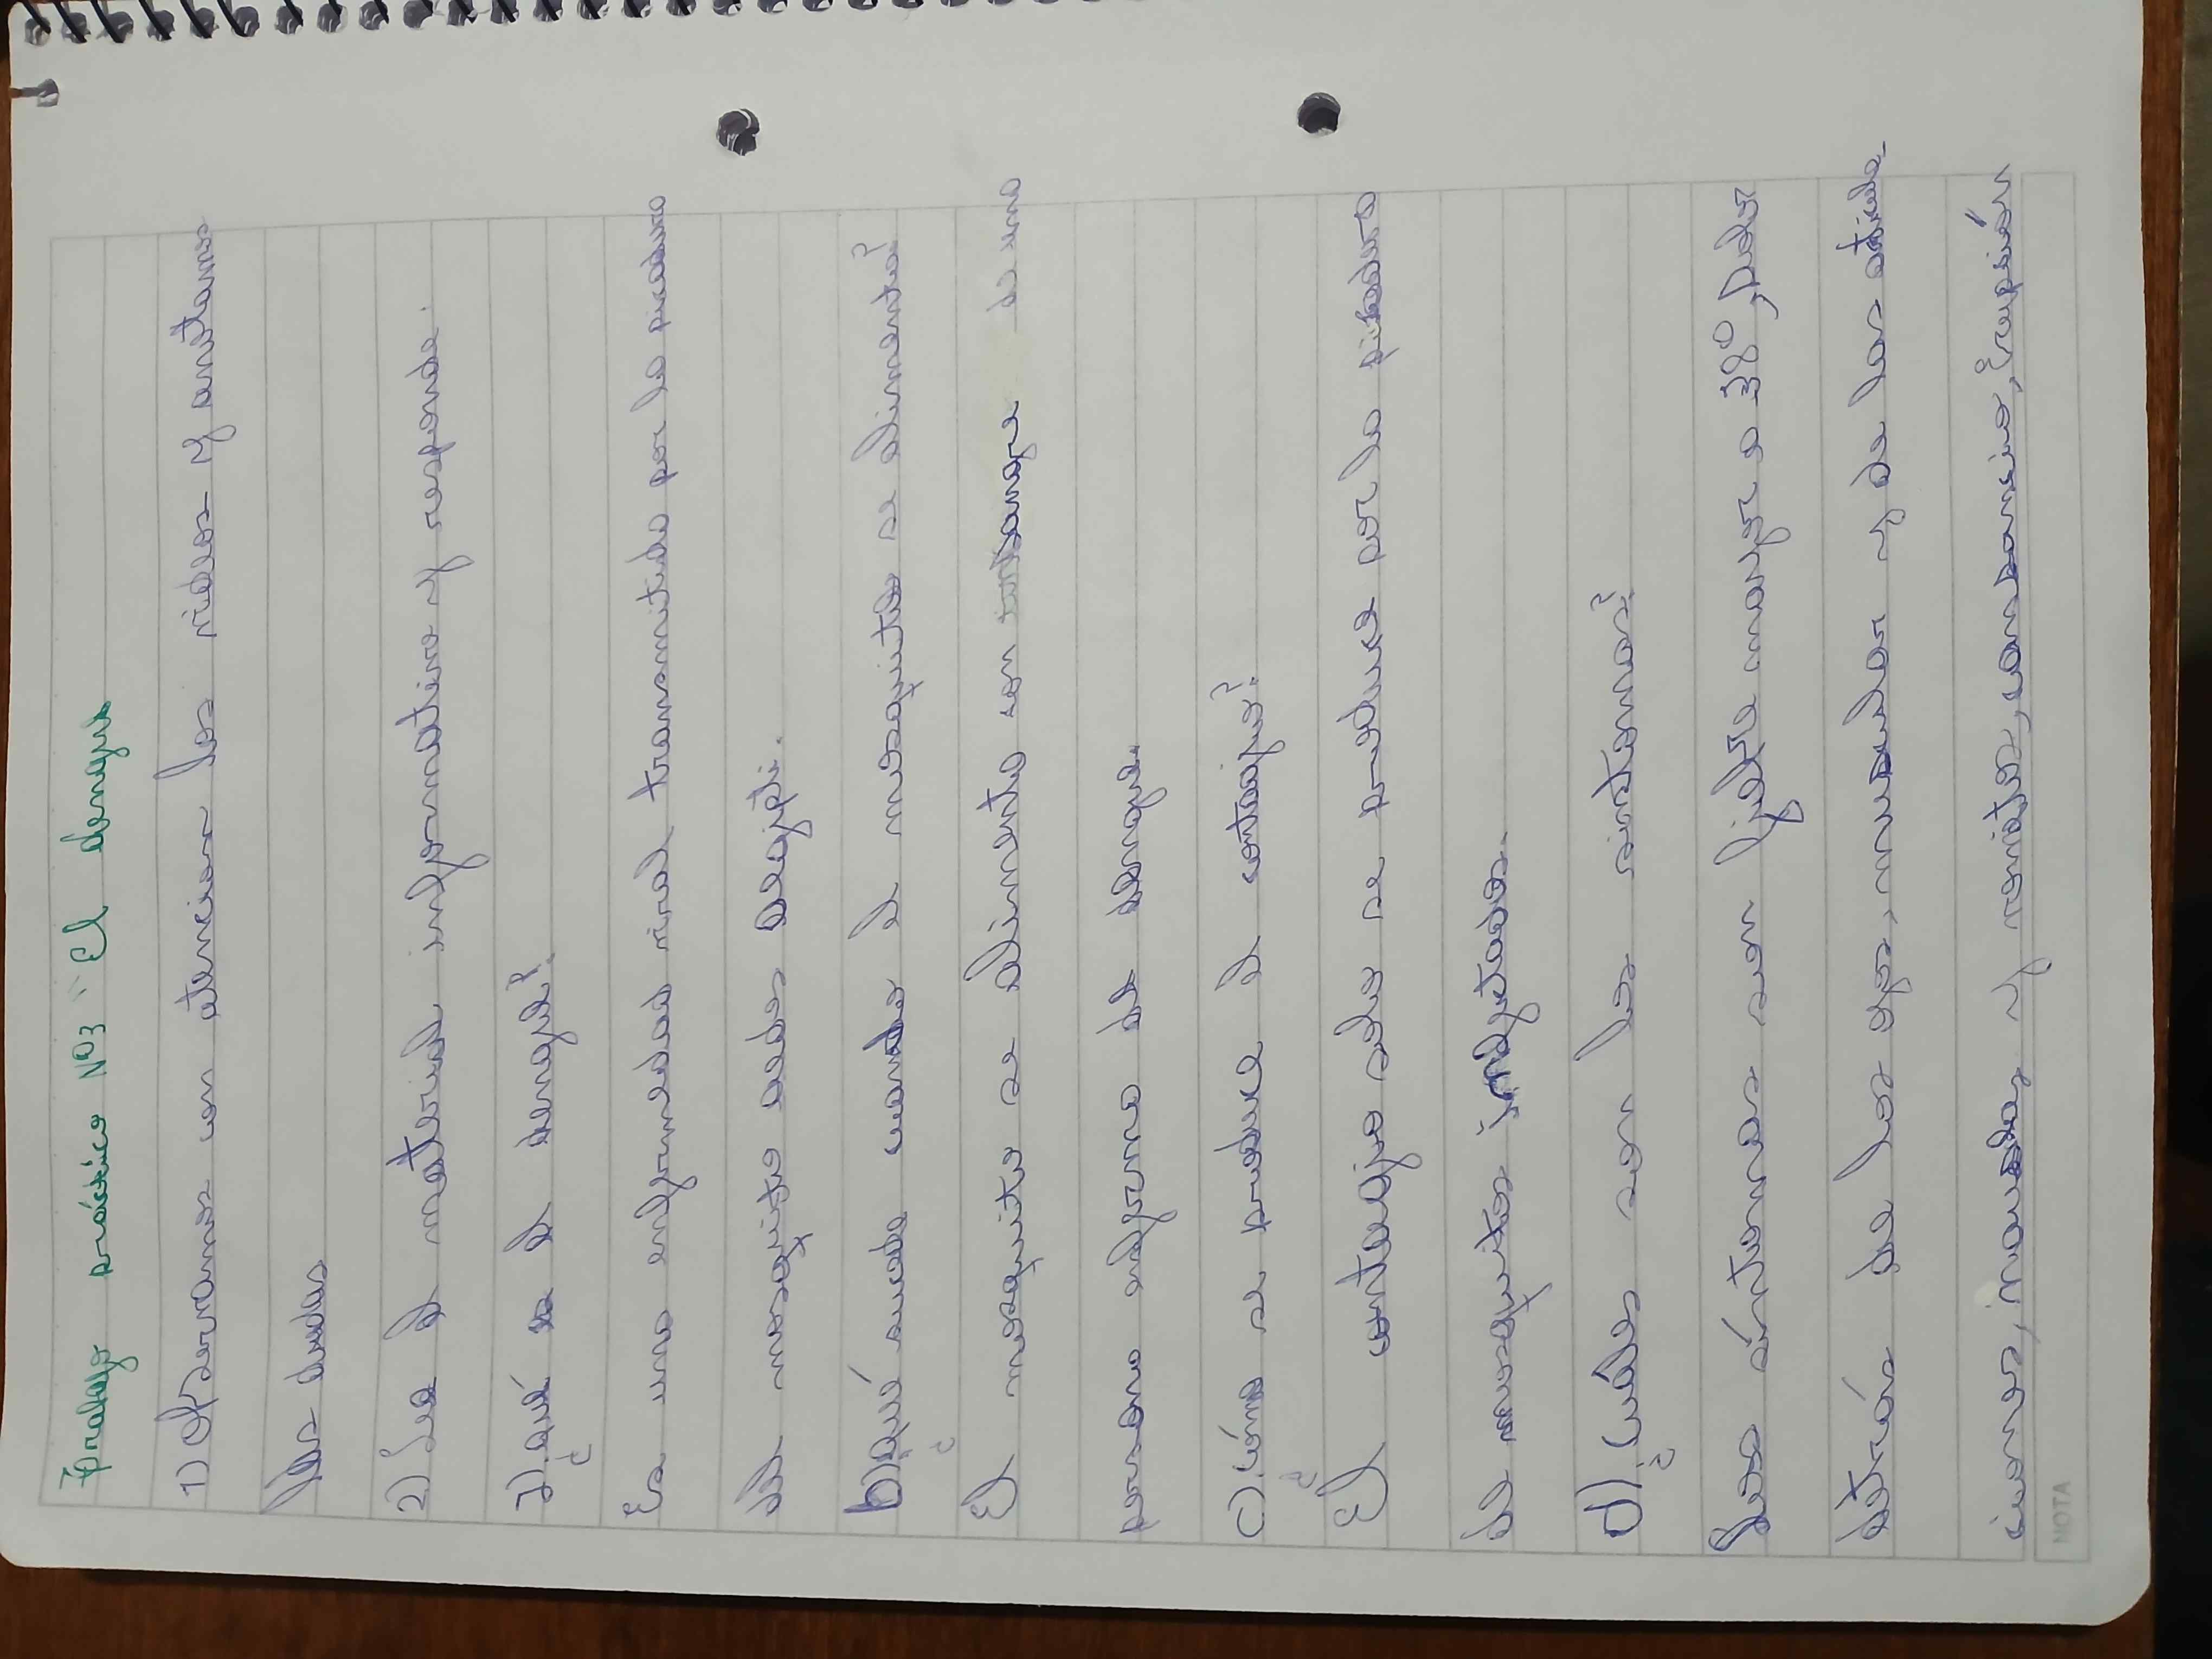 Trabajo práctico Nº3 "El dengue
1) Observamos con atencion los videos y anotamos
las dudas
2) Lee el material informativo y responde.
a) ¿qué es el dengue?
Es una enfermedad viral transmitida por la picadura
del mosquito aedes aegipti.
b) ¿Qué sucede cuando el mosquito se alimenta?
El mosquito se alimenta con sangre de una
persona enferma de dengue.
c) ¿Cómo se produce el contagio?
El contagio solo se produce por la picadura
de mosquitos infectados.
d) ¿Cuáles son los sintomas?
Los síntomas son fiebre mayor a 38º, Dolor
detrás de los ojos, muscular y de las articula-
ciones, nauseas y vomitos, cansansio, Erupsión
NOTA